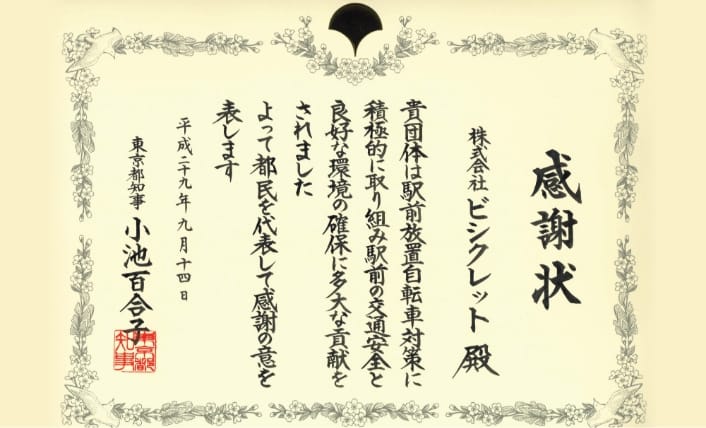 感謝状
株式会社 ビシクレット 殿
貴団体は駅前放置自転車対策に
積極的に取り組み駅前の交通安全と
良好な環境の確保に多大な貢献を
されました
よって都民を代表して感謝の意を
表します
平成二十九年九月十四日
東京都知事 小池百合子
東京都
知事